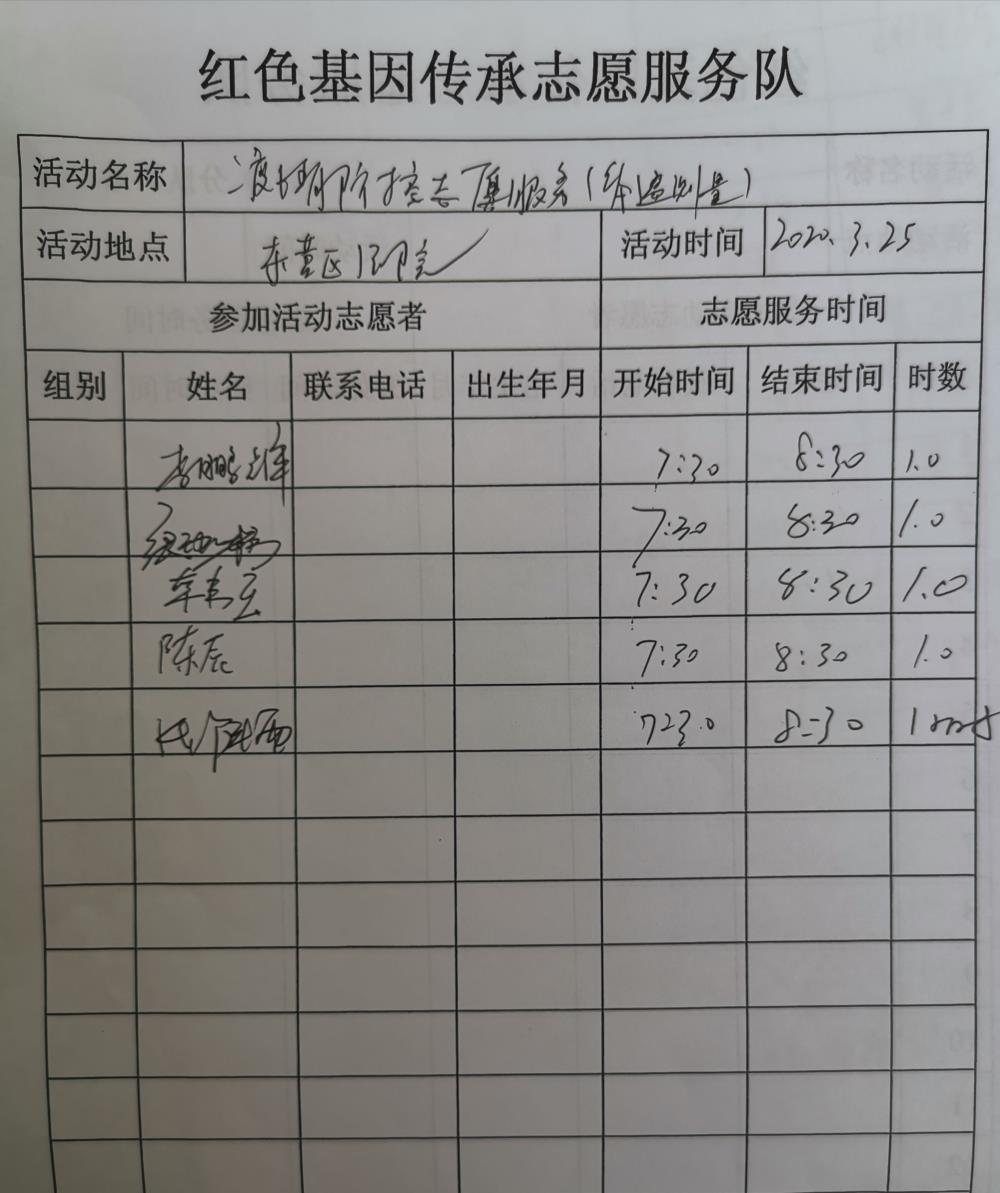 红色基因传承志愿服务队
活动名称 防控志愿服务(体温测量)
活动地点 东营区 活动时间 2020.3.25
参加活动志愿者 志愿服务时间
组别 姓名 联系电话 出生年月 开始时间 结束时间 时数
7:30 8:30 1.0
7:30 8:30 1.0
7:30 8:30 1.0
陈辰 7:30 8:30 1.0
8:30